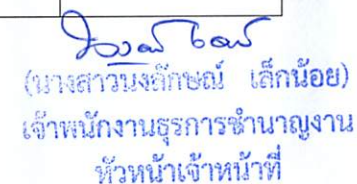 (นางสาวนงลักษณ์ เล็กน้อย)
เจ้าพนักงานธุรการชำนาญงาน
หัวหน้าเจ้าหน้าที่